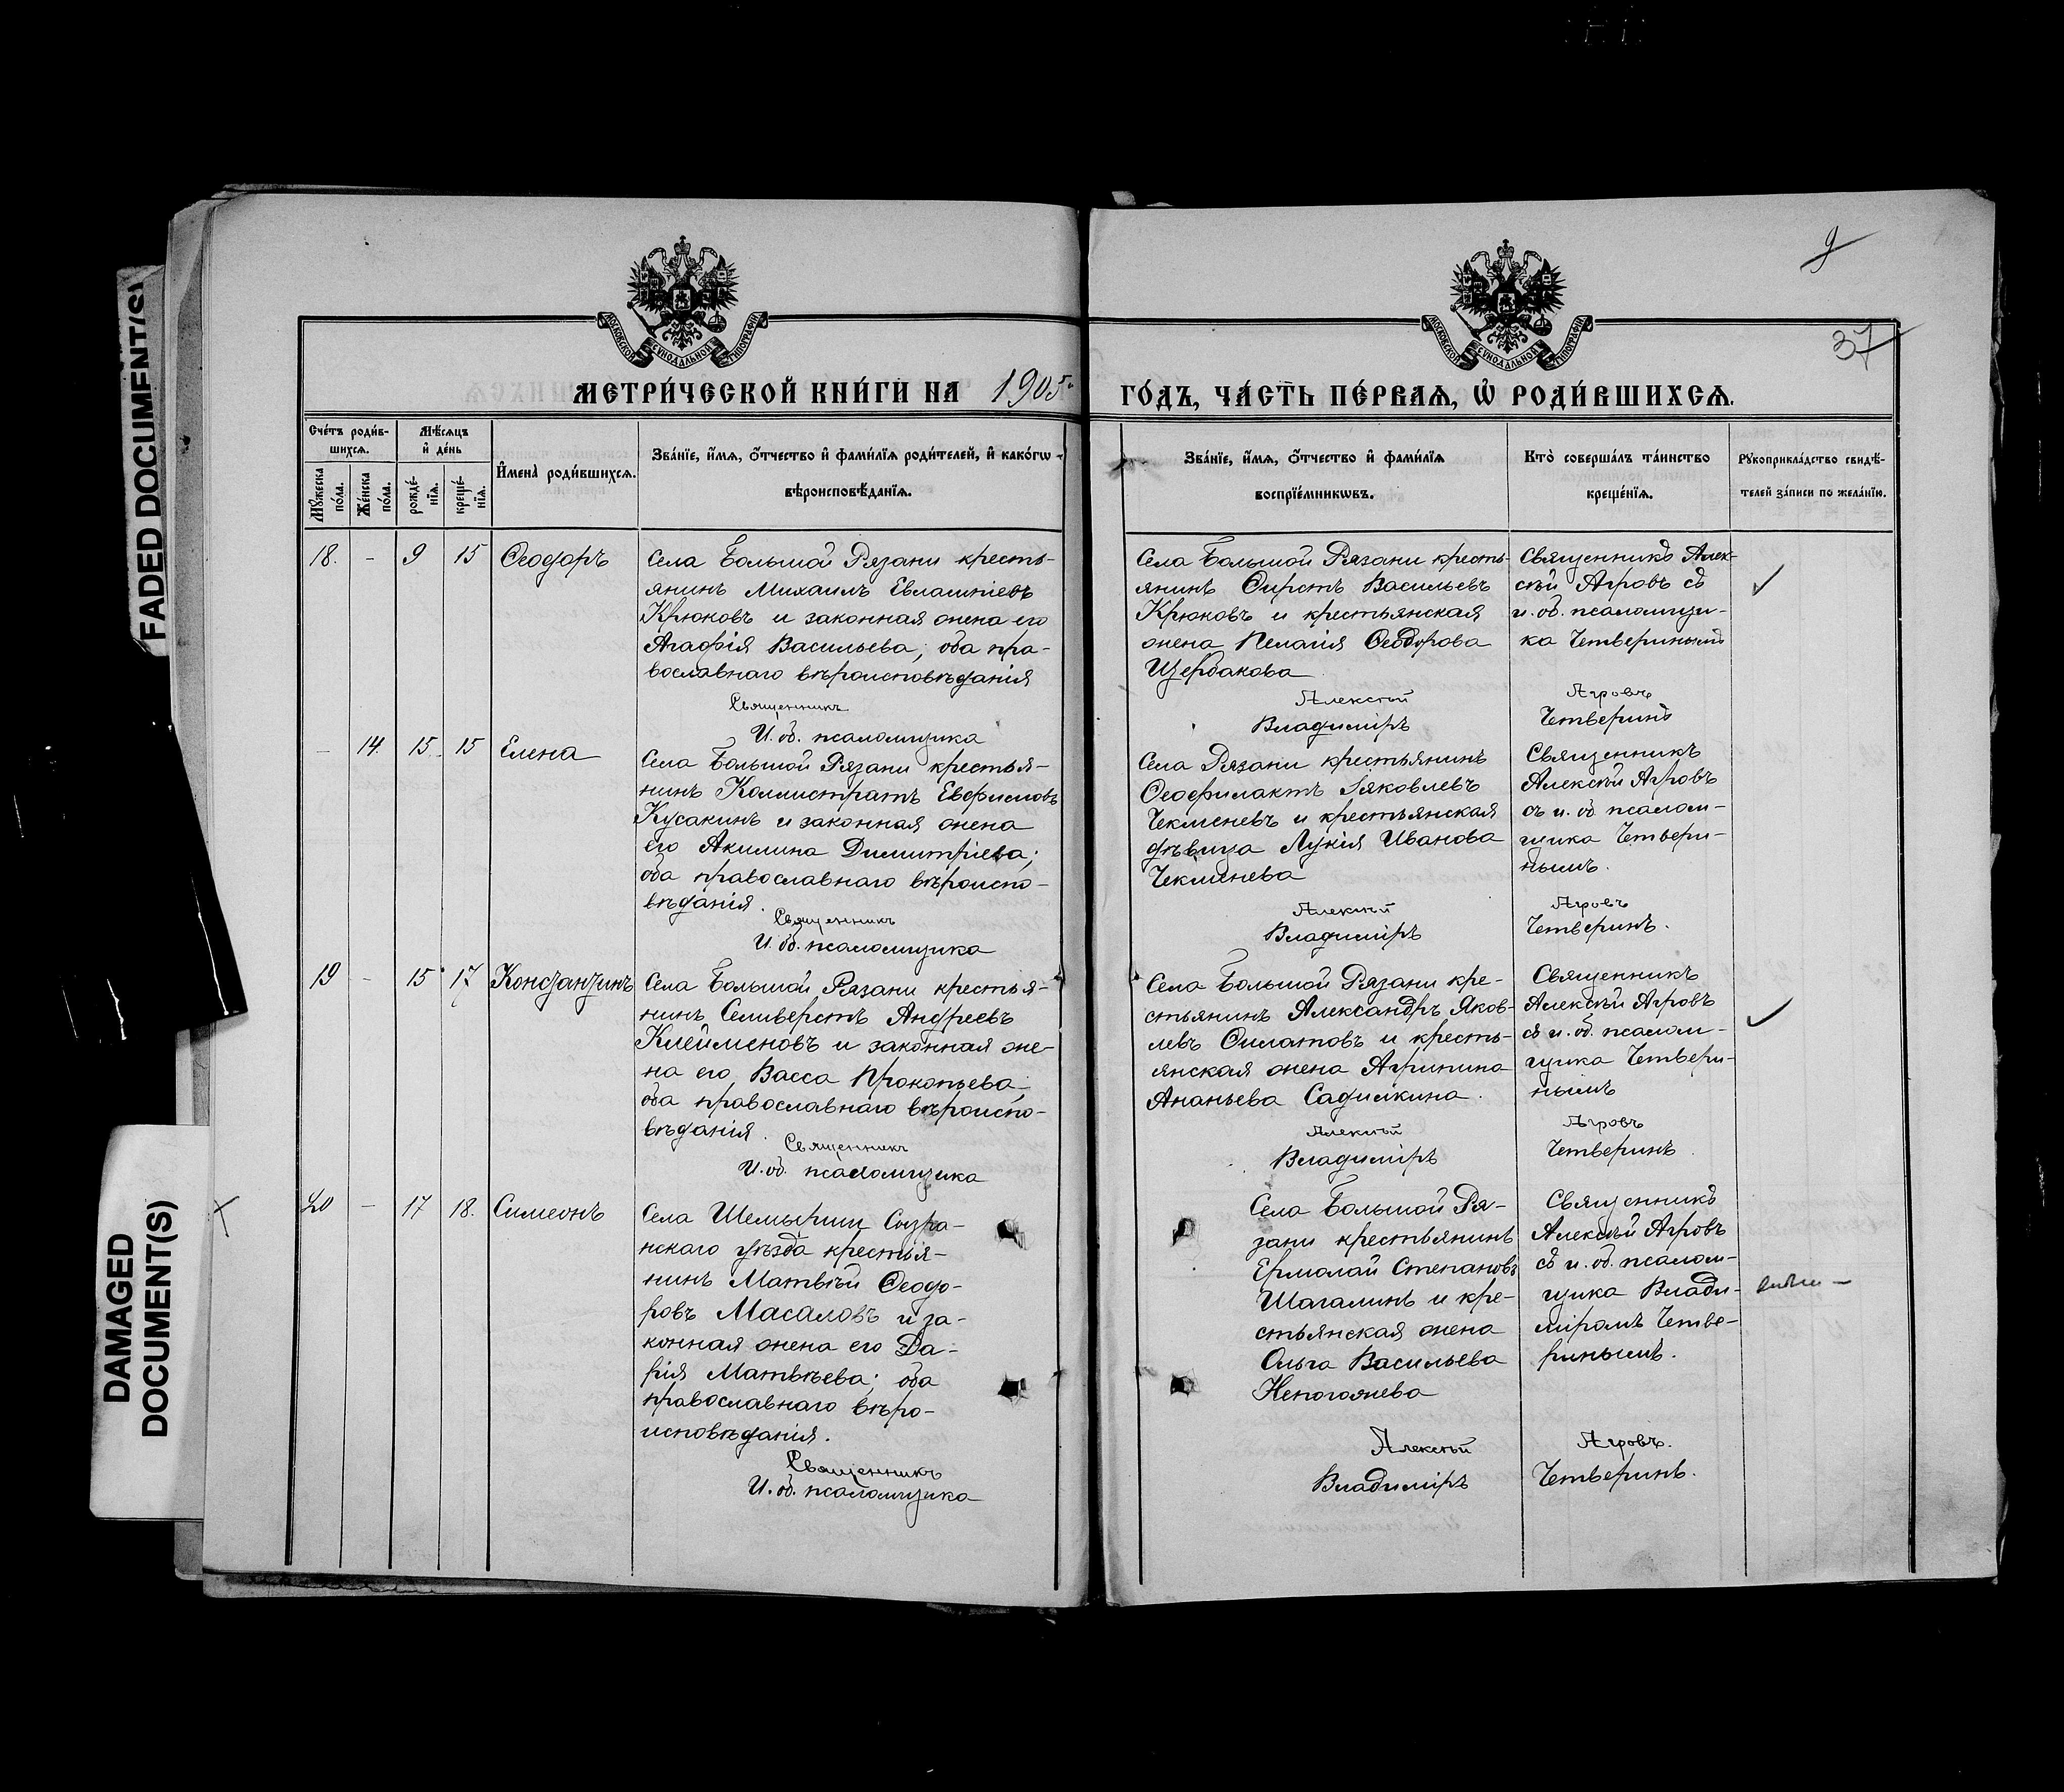 FADED DOCUMENT(S)
DAMAGED
DOCUMENT(S)
9
37
МОСКОВСКОЙ СѴНОДАЛЬНОЙ ТИПОГРАФІИ
МОСКОВСКОЙ СѴНОДАЛЬНОЙ ТИПОГРАФІИ
МЕТРИ́ЧЕСКОЙ КНИ́ГИ НА 1905
ГО́ДЪ, ЧА́СТЬ ПЕ́РВАѦ, Ѡ҆ РОДИ́ВШИХСѦ.
Сче́тъ роди́в-
шихсѧ.
Мꙋжеска
по́ла.
Же́нска
по́ла.
Мѣ́сѧцъ
и҆ де́нь
рожде́-
нїѧ.
креще́-
нїѧ.
И҆мена̀ роди́вшихсѧ.
Зва́нїе, и҆́мѧ, ѻ҆́тчество и҆ фами́лїѧ роди́телей, и҆ како́гѡ
вѣроисповѣ́данїѧ.
Зва́нїе, и҆́мѧ, ѻ҆́тчество и҆ фами́лїѧ
воспрїе́мникѡвъ.
Кто̀ соверша́лъ та́инство
креще́нїѧ.
Рꙋкоприкла́дство свидѣ́-
телей за́писи по жела́нїю.
18. - 9 15 Ѳеодоръ
Села Большой Рязани кресть-
янинъ Михаилъ Евлампіевъ
Крюковъ и законная жена его
Агафія Васильева; оба пра-
вославнаго вѣроисповѣданія
Священникъ
И. об. псаломщика
Села Большой Рязани кресть-
янинъ Ѳирсъ Васильевъ
Крюковъ и крестьянская
жена Пелагія Ѳеодорова
Щербакова
Алексѣй
Владиміръ
Священникъ Алек-
сѣй Агровъ съ
и. об. псаломщи-
ка Четверинымъ
Агровъ
Четверинъ
- 14. 15. 15 Елена
Села Большой Рязани крестья-
нинъ Каллистратъ Евфимовъ
Кусакинъ и законная жена
его Акилина Димитріева;
оба православнаго вѣроиспо-
вѣданія.
Священникъ
И. об. псаломщика
Села Рязани крестьянинъ
Ѳеофилактъ Іяковлевъ
Чекменевъ и крестьянская
дѣвица Лукія Иванова
Чекменева
Алексѣй
Владиміръ
Священникъ
Алексѣй Агровъ
съ и. об псалом-
щика Четвери-
нымъ.
Агровъ
Четверинъ.
19 - 15 17 Константинъ
Села Большой Рязани крестья-
нинъ Селиверстъ Андреевъ
Клейменовъ и законная же-
на его Васса Прокопьева;
оба православнаго вѣроиспо-
вѣданія.
Священникъ
И. об. псаломщика
Села Большой Рязани кре-
стьянинъ Александръ Яков-
левъ Филатовъ и кресть-
янская жена Агрипина
Ананьева Садилкина.
Алексѣй
Владиміръ
Священникъ
Алексѣй Агровъ
съ и. об. псалом-
щика Четвери-
нымъ
Агровъ
Четверинъ
20 - 17 18. Симеонъ
Села Шемыриш Сызра-
нскаго уѣзда крестья-
нинъ Матвѣй Ѳеодо-
ровъ Масаловъ и за-
конная жена его Да-
рія Матвѣева; оба
православнаго вѣро-
исповѣданія.
Священникъ
И. об. псаломщика
Села Большой Ря-
зани крестьянинъ
Ермолай Степановъ
Шагалинъ и кре-
стьянская жена
Ольга Васильева
Непогожева
Алексѣй
Владиміръ
Священникъ
Алексѣй Агровъ
съ и. об. псалом-
щика Влади-
міромъ Четве-
ринымъ.
Агровъ.
Четверинъ.